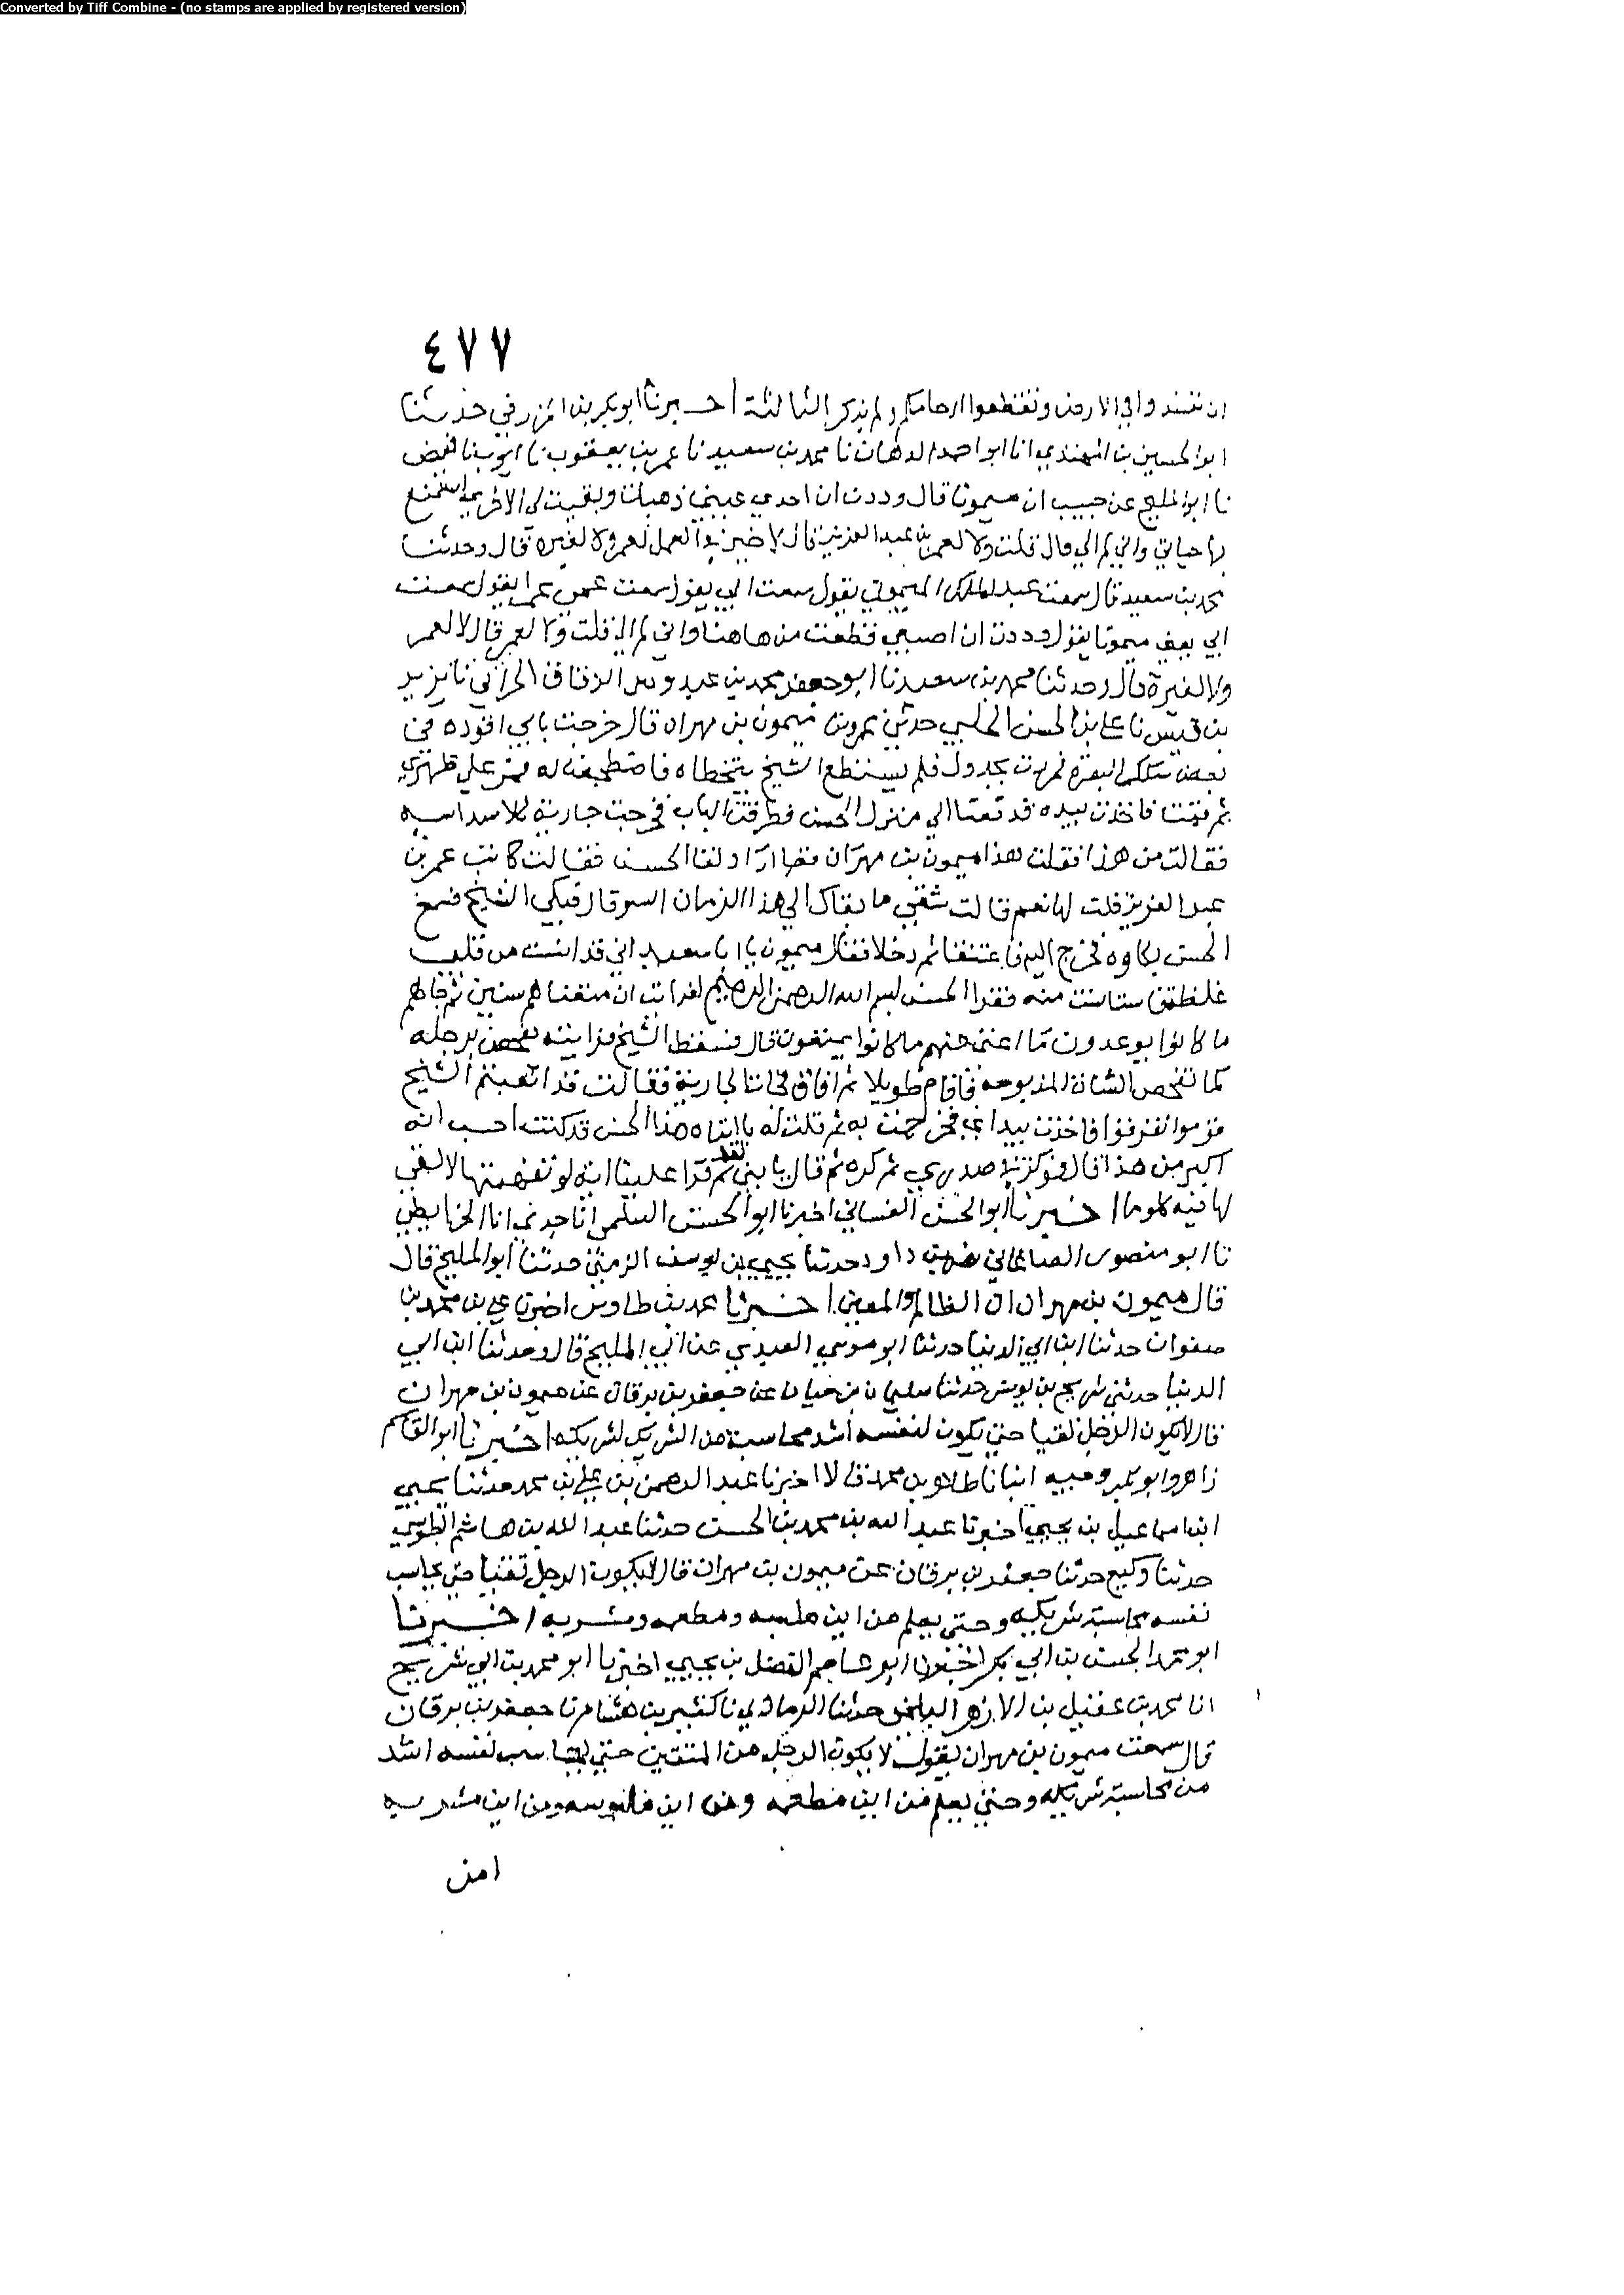 Converted by Tiff Combine - (no stamps are applied by registered version)
٤٧٧
ان تفسدوا في الارض وتقطعوا ارحامكم ولم يذكر الثالثة اخبرنا ابو بكر بن المزرفي حدثنا
ابو الحسين بن المهتدي انا ابو احمد الدهان نا محمد بن سعيد نا عمر بن يعقوب نا ايوب نا
نا ابو المليح عن حبيب ان ميمونا قال وددت ان احدى عيني ذهبت وبقيت لي الاخرى اتمتع
بها حياتي واني لم الي قال قلت ولا لعمر بن عبد العزيز قال لا خير في العمل لعمر ولا لغيره قال وحدثنا
محمد بن سعيد قال سمعت عبد الملك الميموني يقول سمعت ابي يقول سمعت عمي عمرا يقول سمعت
ابي يعني ميمونا يقول وددت ان اصبعي قطعت من هاهنا واني لم الي قلت ولا لعمر قال لا لعمر
ولا لغيره قال وحدثنا محمد بن سعيد نا ابو جعفر محمد بن عبدوس الزقاق الحراني نا يزيد
بن قيس نا علي بن الحسن الحلبي حدثني عمرو بن ميمون بن مهران قال خرجت بابي اقوده في
بعض سكك البصرة فمررت بجدول فلم يستطع الشيخ يتخطاه فاضطجعت له فمر على ظهري
ثم قمت فاخذت بيده فدفعنا الى منزل الحسن فطرقت الباب فخرجت جارية سداسيه
فقالت من هذا فقلت هذا ميمون بن مهران اراد لقا الحسن فقالت كاتب عمر بن
عبد العزيز قلت لها نعم قالت شقي ما بقاك الى هذا الزمان السو قال فبكى الشيخ فسمع
الحسن بكاوه فخرج اليه فاعتنقا ثم دخلا فقال ميمون يا ابا سعيد اني قد انست من قلبي
غلظة منه فقرا الحسن بسم الله الرحمن الرحيم افرايت ان متعناهم سنين ثم جاهم
ما كانوا يوعدون ما اغنى عنهم ما كانوا يمتعون قال فسقط الشيخ فرايته يفحص برجله
كما تفحص الشاة المذبوحه فاقام طويلا ثم افاق فجات الجارية فقالت قد اتعبتم الشيخ
قوموا تفرقوا فاخذت بيد ابي فخرجت به ثم قلت له يا ابتاه هذا الحسن قد كنت احسب انه
اكبر من هذا قال فوكز في صدري وكزه ثم قال يا بني لقد قرا علينا اية لو تفهمتها لالفي
لها فيه كلوما اخبرنا ابو الحسن الغساني اخبرنا ابو الحسن السلمي انا جدي انا الخرايطي
نا ابو منصور الصاغاني نصر بن داود حدثنا يحيى بن يوسف الزمي حدثنا ابو المليح قال
قال ميمون بن مهران ان الظالم والمعين اخبرنا محمد بن طاوس اخبرنا علي بن محمد بن
صفوان حدثنا ابن ابي الدنيا حدثنا ابو موسى العبدي عن ابي المليح قال وحدثنا ابن ابي
الدنيا حدثني شريح بن يونس حدثنا سليمان بن حيان عن جعفر بن برقان عن ميمون بن مهران
قال لا يكون الرجل تقيا حتى يكون لنفسه اشد محاسبة من الشريك لشريكه اخبرنا ابو القاسم
زاهر وابو بكر وجيه ابنا طاهر بن محمد قالا اخبرنا عبد الرحمن بن علي بن محمد حدثنا يحيى
ابن اسماعيل بن يحيى اخبرنا عبد الله بن محمد بن الحسن حدثنا عبد الله بن هاشم الطوسي
حدثنا وكيع حدثنا جعفر بن برقان عن ميمون بن مهران قال لا يكون الرجل تقيا حتى يحاسب
نفسه محاسبة شريكه وحتى يعلم من اين ملبسه ومطعمه ومشربه اخبرنا
ابو محمد الحسن بن ابي بكر اخبرنا ابو عاصم الفضل بن يحيى اخبرنا ابو محمد بن ابي شريح
انا محمد بن عقيل بن الازهر البلخي حدثنا الرمادي نا كثير بن هشام نا جعفر بن برقان
قال سمعت ميمون بن مهران يقول لا يكون الرجل من المتقين حتى يحاسب نفسه اشد
من محاسبة شريكه وحتى يعلم من اين مطعمه ومن اين ملبوسه ومن اين مشربه
امن